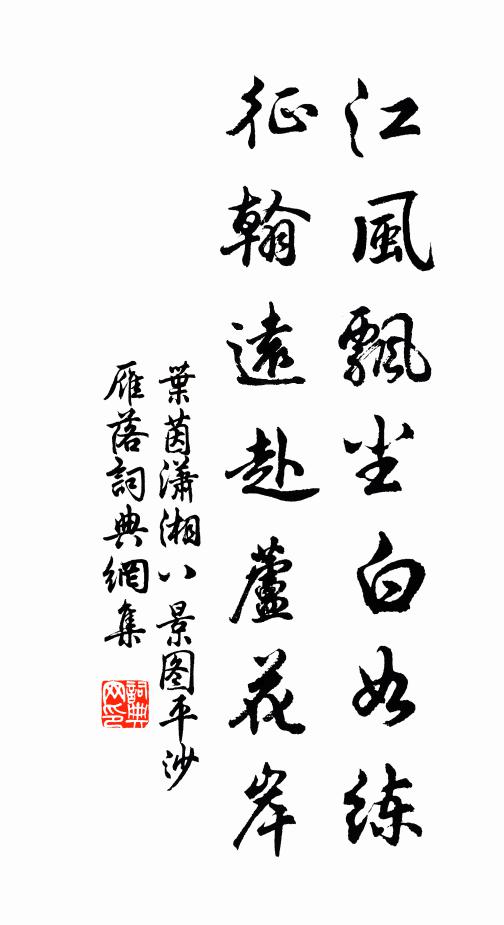 江風飄尘白如练
征翰遠赴蘆花岸
葉茵瀟湘八景图平沙
雁落詞典網集
詞典
网印